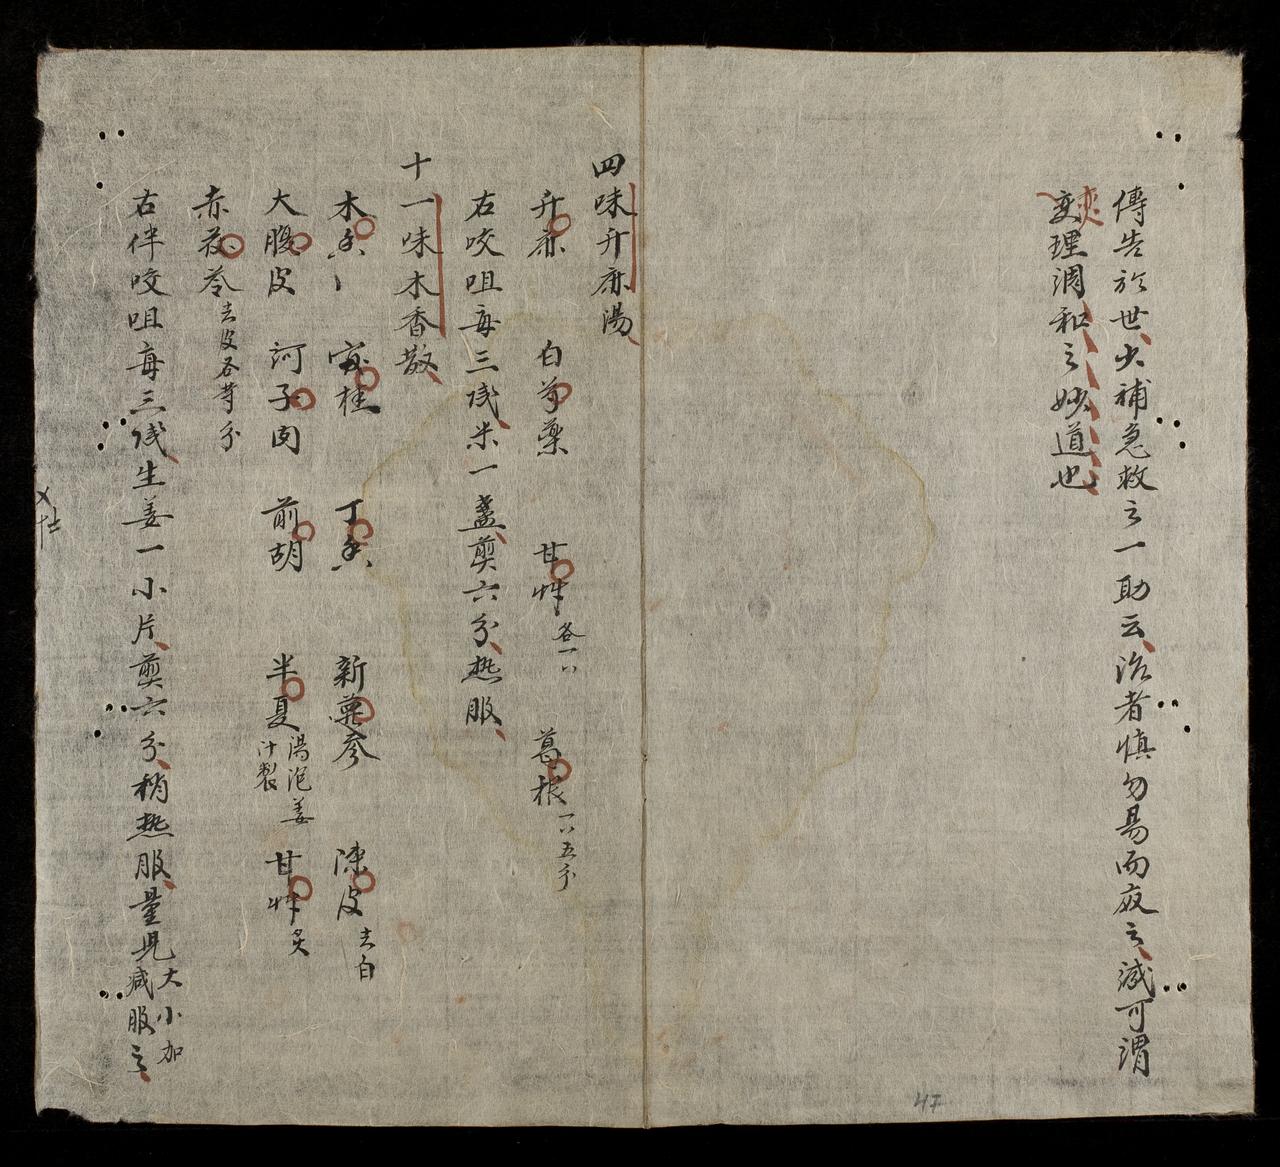 傳告於世少補急救之一助云治者慎勿易而廢之減可謂
變理調和之妙道也
爕
四味升麻湯
升麻 白芍藥 甘艸各一 葛根一 五分
右咬咀每三戔米一盞煎六分热服
十一味木香散
木香 官桂 丁香 新羅參 陳皮去白
大腹皮 訶子肉 前胡 半夏湯泡姜汁製 甘艸炙
赤茯苓去皮各等分
右件咬咀每三戔生姜一小片煎六分稍热服量兒大小加减服之
47